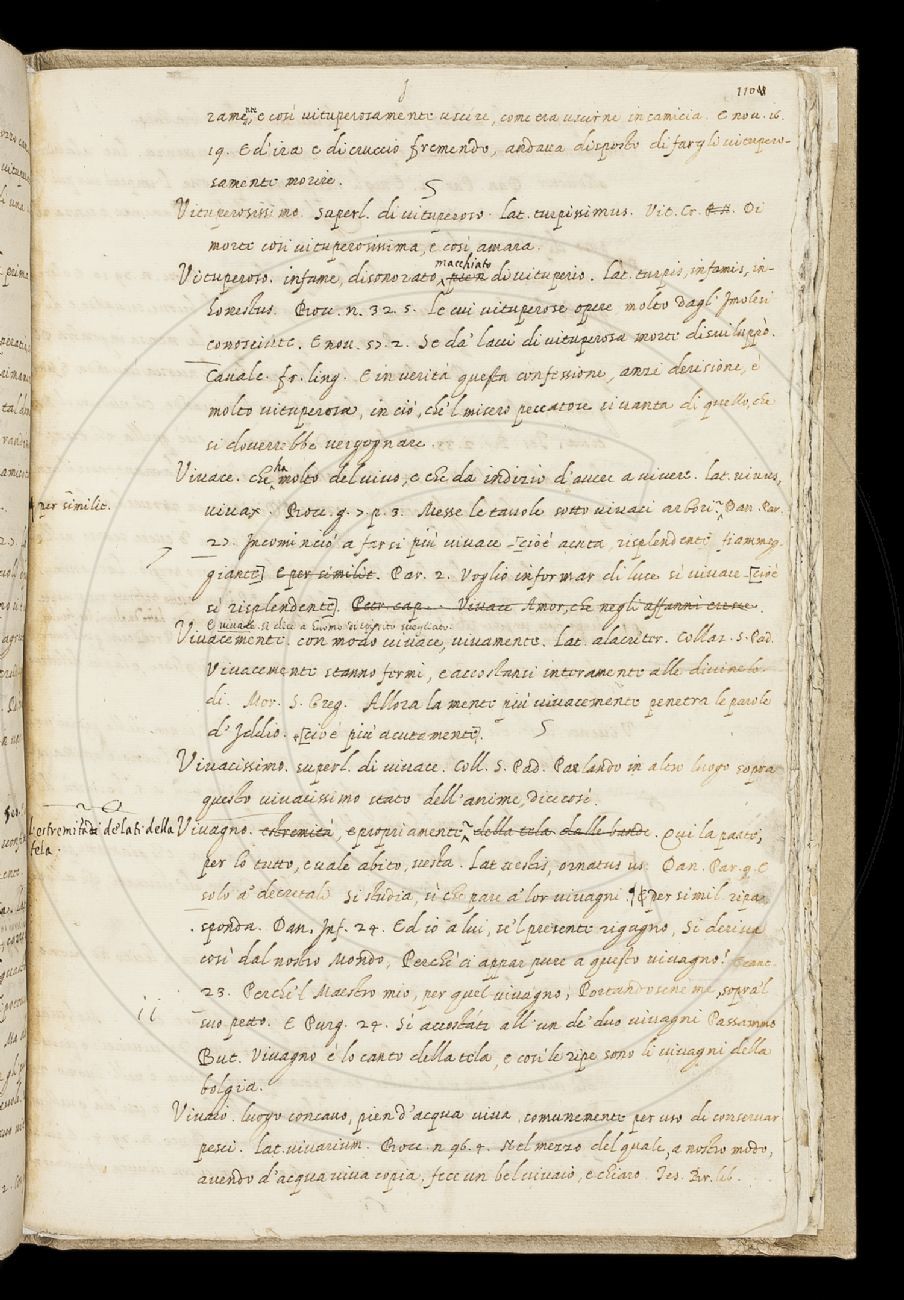 1104
rame.nte, e così uituperosamente uscire, come era uscirne in camicia. E nou. 16.
19. E d'ira e di cruccio fremendo, andaua disposto di fargli uitupero-
samente morire.
Vituperosissimo. Superl. di uituperoso. Lat. turpissimus. Vit. Cr. Di
morte così uituperosissima, e così amara.
macchiato
Vituperoso. infame, disonorato, pien di uituperio. Lat. turpis, infamis, in-
honestus. Bocc. n. 32. 5. Le cui uituperose opere molto dagl' Imolesi
conosciute. E nou. 57. 2. Se da' lacci di uituperosa morte disuiluppò.
Caualc. fr. ling. E in uerità questa confessione, anzi derisione, è
molto uituperosa, in ciò, che 'l misero peccatore si uanta di quello, che
si douerrebbe uergognare.
Viuace. che ha molto del uiuo, e che da indizio d'auere a uiuere. Lat. uiuus,
per similit.
uiuax. Bocc. g. 7. p. 3. Messe le tauole sotto uiuaci arbori. Dan. Par.
27. Incominciò a farsi più uiuace [cioè acuta, risplendente, fiammeg-
giante] E per similit. Par. 2. Voglio informar di luce sì uiuace [cioè
sì risplendente]. Petr. cap. Viuace Amor, che negli affanni cresce.
E uiuace si dice a huomo di spirito suegliato.
Viuacemente. con modo uiuace, uiuamente. Lat. alacriter. Collaz. S. Pad.
Viuacemente stanno fermi, e accostansi interamente alle diuine lo-
di. Mor. S. Greg. Allora la mente più uiuacemente penetra le parole
d'Iddio. [cioè più acutamente].
Viuacissimo. superl. di uiuace. Coll. S. Pad. Parlando in altro luogo sopra
questo uiuacissimo stato dell'anime, dice così.
L'estremità de' lati della
tela.
Viuagno. estremità, e propriamente della tela dalle bande. Qui la parte,
per lo tutto, e uale abito, uesta. Lat. uestis, ornatus us. Dan. Par. 9. E
solo a' decretali Si studia, sì che pare a' lor uiuagni. E per simil. ripa
sponda. Dan. Inf. 24. Ed io a lui, se 'l presente rigagno, Si deriua
così dal nostro Mondo, Perchè ci appar pure a questo uiuagno?
23. Perchè 'l Maestro mio, per quel uiuagno, Portandosene me, sopra 'l
suo petto. E Purg. 24. Sì accostati all'un de' duo uiuagni Passammo
But. Viuagno è lo canto della tela, e così le ripe sono li uiuagni della
bolgia.
Viuaio. luogo concauo, pien d'acqua uiua, comunemente per uso di conseruar
pesci. Lat. uiuarium. Bocc. n. 96. 4. Nel mezzo del quale, a nostro modo,
auendo d'acqua uiua copia, fece un bel uiuaio, e chiaro. Tes. Br. lib.